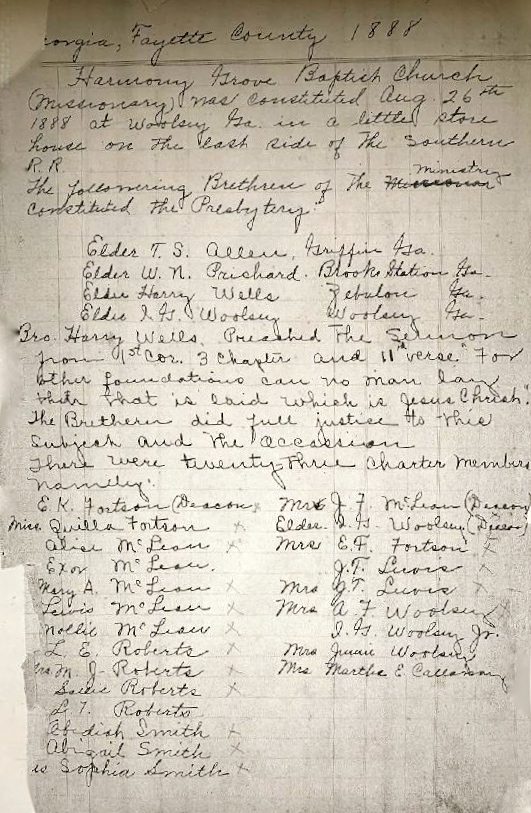 orgia, Fayette County 1888
Harmony Grove Baptist Church
(Missionary) was constituted Aug. 26th
1888 at Woolsey Ga. in a little store
house on the east side of the Southern
R.R.
The followering Brethren of the Missionar ministry
constituted the Presbytery:
Elder T. S. Allen, Griffin Ga.
Elder W. N. Prichard. Brooks Station Ga.
Elder Harry Wells Zebulon Ga.
Elder I. G. Woolsey Woolsey Ga.
Bro. Harry Wells. Preached The Sermon
from 1st Cor. 3 Chapter and 11th verse. "For
other foundations can no man lay
than that is laid which is Jesus Christ.
The Brethern did full justice to this
Subject and the occassion
There were twenty-three charter members
namely:
E. K. Fortson (Deacon) x Mrs J. F. McLean (Deacon)
Miss. Quilla Fortson x Elder. I. G. Woolsey (Deacon)
Alice McLean x Mrs E. F. Fortson x
Exor McLean. J. T. Luvis x
Mary A. McLean x Mrs J. T. Luvis x
Lewis McLean x Mrs A F Woolsey x
Mollie McLean x I. G. Woolsey Jr.
L. E. Roberts x Mrs Woolsey
Mrs. M. J. Roberts x Mrs Martha E. Callaway
Sallie Roberts x
L. T. Roberts
Obidiah Smith x
Abigail Smith x
is Sophia Smith x